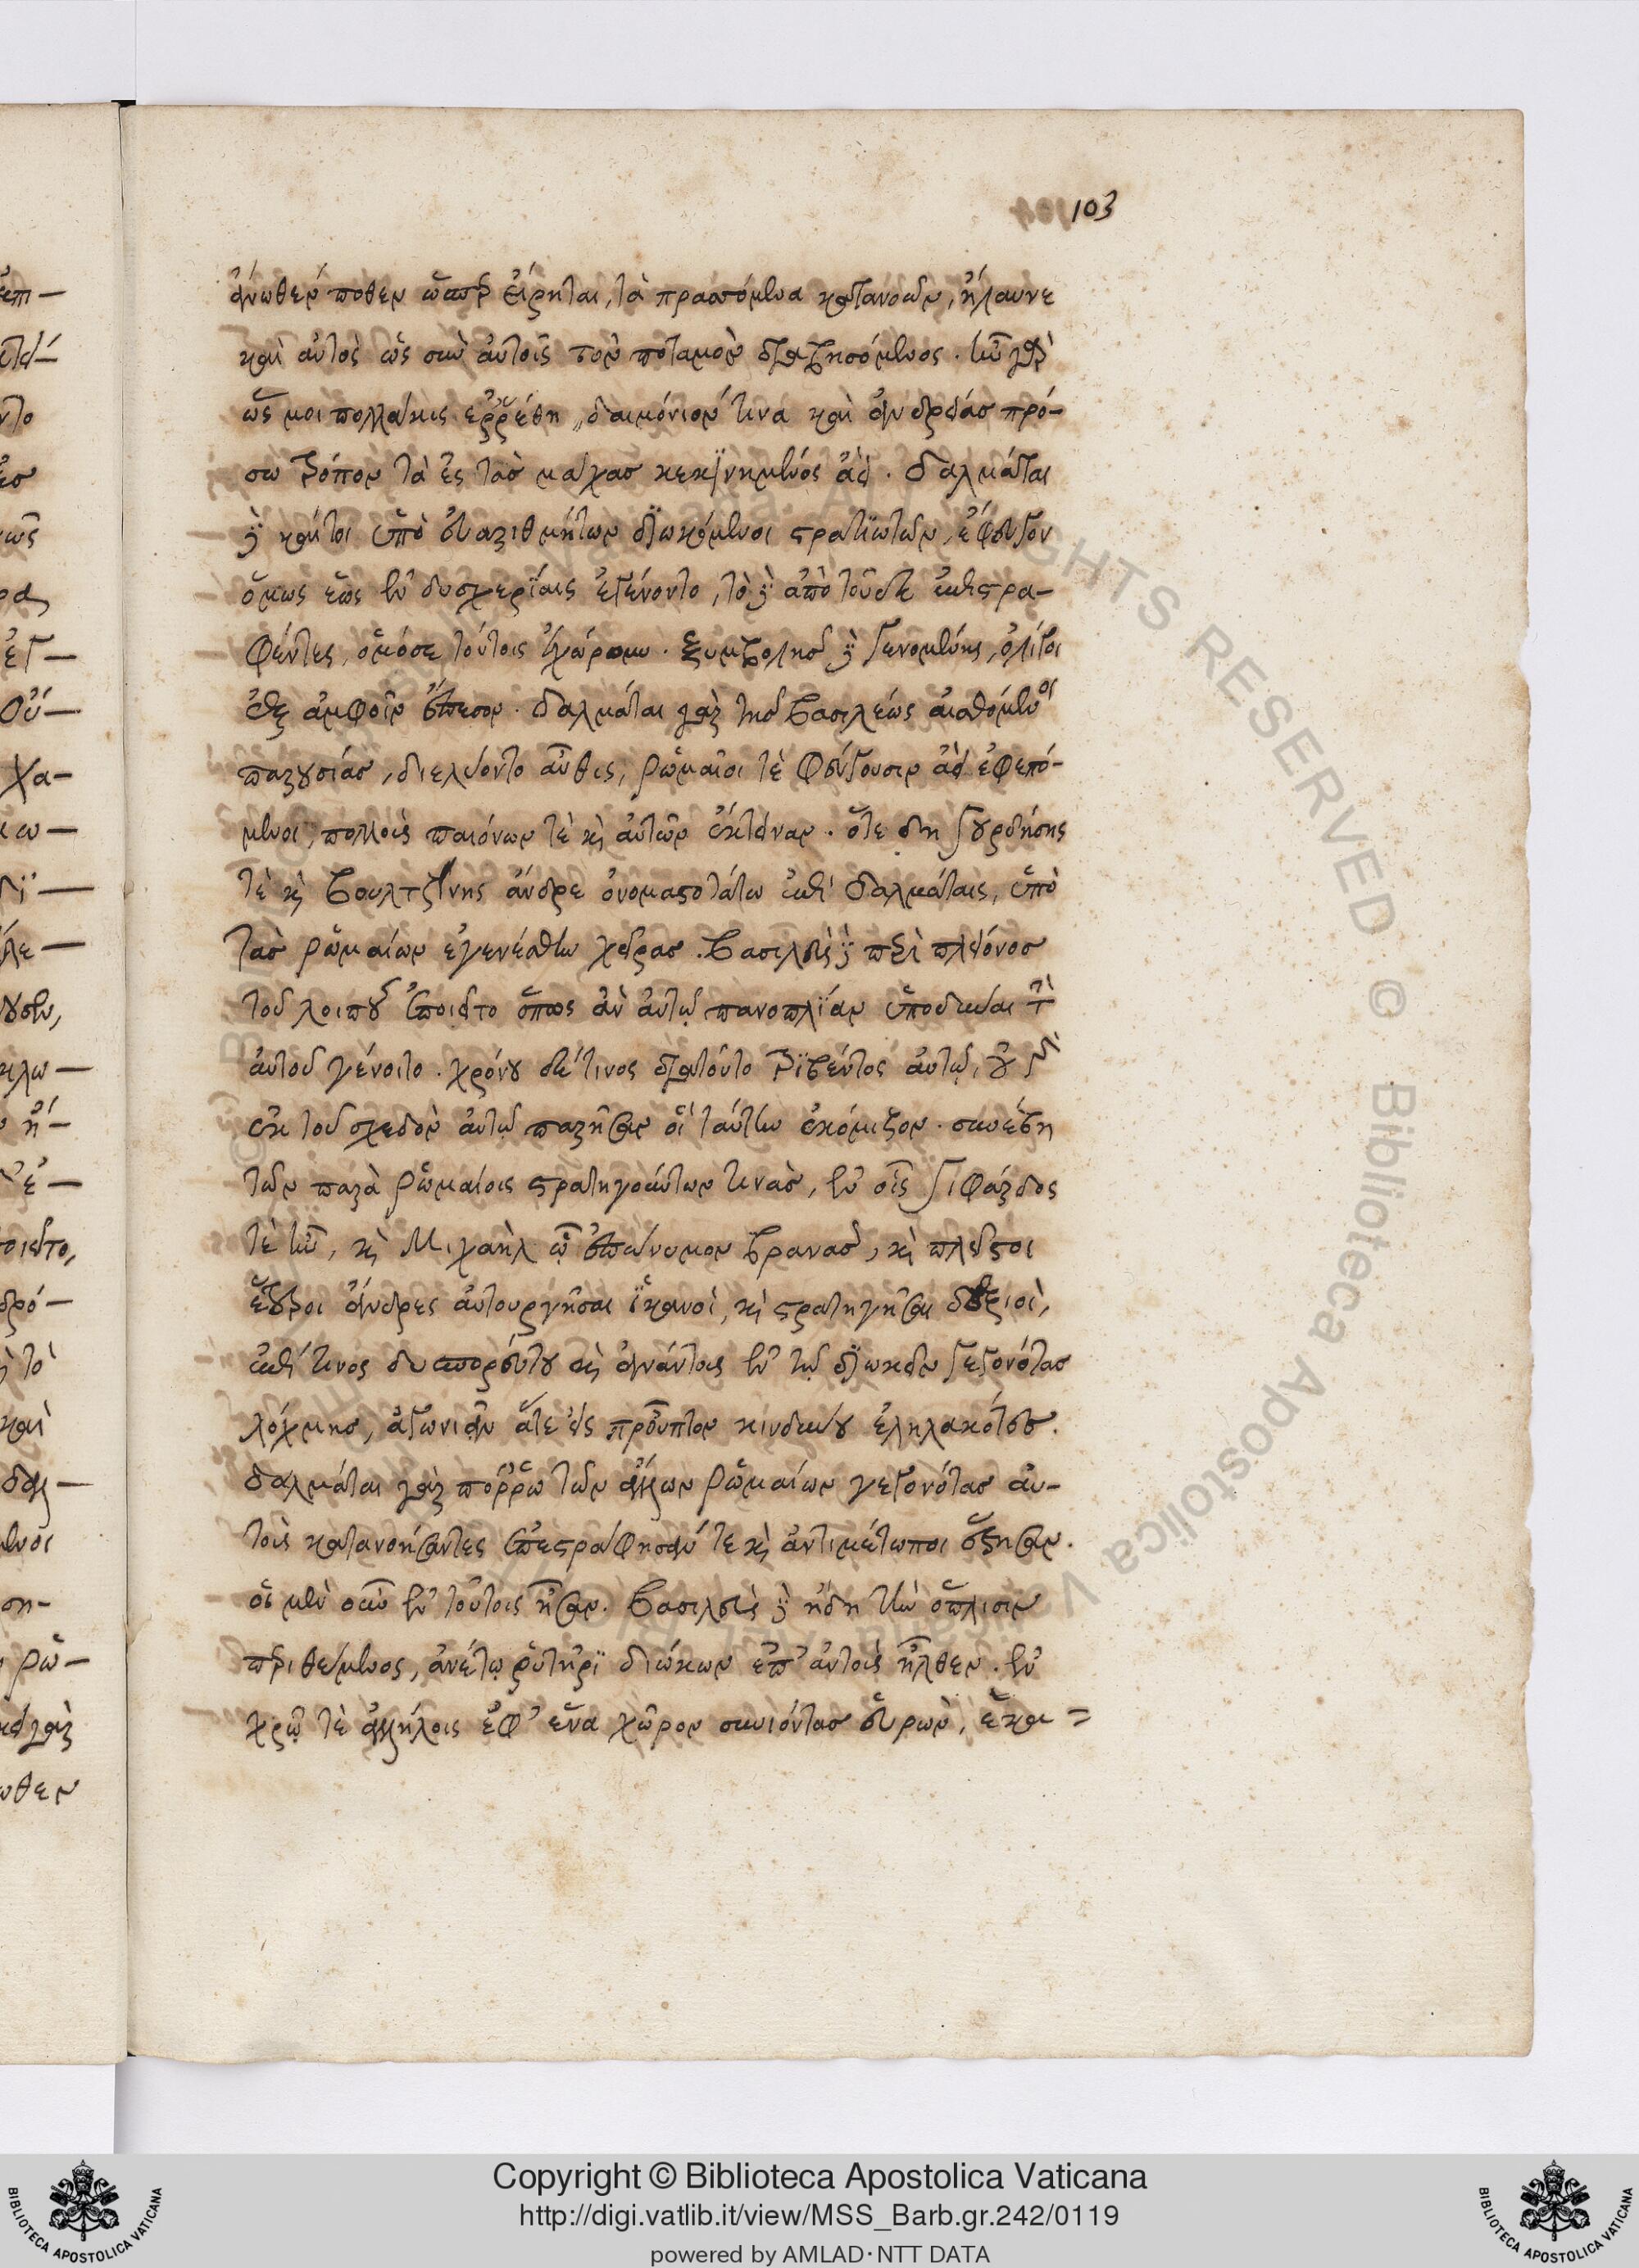 103
ἄνωθέν ποθεν ὥσπερ εἴρηται, τὰ πρασσόμενα κατανοῶν, ἤλαυνε
καὶ αὐτὸς ὡς σὺν αὐτοῖς τὸν ποταμὸν διαβησόμενος. ἦν γὰρ
ὥς μοι πολλάκις ἐρρέθη, δαιμόνιόν τινα καὶ ἀνδρείας πρό-
σω τρόπον τὰ ἐς τὰς μάχας κεκινημένος ἀεί. δαλμάται
δὲ καίτοι ὑπὸ εὐαριθμήτων διωκόμενοι στρατιωτῶν, ἔφευγον
ὅμως ἕως ἐν δυσχερίαις ἐγένοντο, τὸ δὲ ἀπὸ τοῦδε ἐπιστρα-
φέντες, ὁμόσε τούτοις ἐχώρουν. ξυμβολῆς δὲ γενομένης, ὀλίγοι
ἐξ ἀμφοῖν ἔπεσον. δαλμάται γὰρ τῆς βασιλέως αἰσθόμενοι
παρουσίας, διελύοντο αὖθις, ῥωμαῖοί τε φεύγουσιν ἀεὶ ἐφεπό-
μενοι, πολλοὺς παιόνων τὲ καὶ αὐτῶν ἔκτειναν. ὅτε δὴ γουρδέσης
τὲ καὶ βουλτζῖνης ἄνδρε ὀνομαστοτάτω ἐπὶ δαλμάταις, ὑπὸ
τὰς ῥωμαίων ἐγενέσθην χεῖρας. βασιλεὺς δὲ περὶ πλείονος
τοῦ λοιποῦ ἐποιεῖτο ὅπως ἂν αὐτῷ πανοπλίαν ὑποδῦναι τὴν
αὐτοῦ γένοιτο. χρόνου δέ τινος διὰ τοῦτο τριβέντος αὐτῷ, οὐ γὰρ
ἐκ τοῦ σχεδὸν αὐτῷ παρῆσαν οἳ ταύτην ἐκόμιζον. συνέβη
τῶν παρὰ ῥωμαίοις στρατηγούντων τινὰς, ἐν οἷς γιφάρδος
τὲ ἦν, καὶ Μιχαὴλ ᾧ ἐπώνυμον βρανᾶς, καὶ πλεῖστοι
ἕτεροι ἄνδρες αὐτουργῆσαι ἱκανοὶ, καὶ στρατηγῆσαι δεξιοὶ,
ἐπί τινος δυσπορεύτου καὶ ἀνάντους ἐν τῷ διώκειν γεγονότας
λόχμης, ἀγωνιᾶν ἅτε ἐς προῦπτον κινδύνου ἐληλακότες.
δαλμάται γὰρ πόρρω τῶν ἄλλων ῥωμαίων γεγονότας αὐ-
τοὺς κατανοήσαντες ἐπεστράφησάν τε καὶ ἀντιμέτωποι ἔστησαν.
οἱ μὲν οὖν ἐν τούτοις ἦσαν. βασιλεὺς δὲ ἤδη τὴν ὅπλισιν
περιθέμενος, ἀνέτῳ ῥυτῆρι διώκων ἐπ' αὐτοὺς ἦλθεν. ἐν
χρῷ τὲ ἀλλήλοις ἐφ' ἕνα χῶρον συνιόντας εὑρὼν, ἕκα=
επ-
ντο
χα-
ω-
καὶ
ση-
ῥω-
ωθεν
BIBLIOTECA APOSTOLICA VATICANA
Copyright © Biblioteca Apostolica Vaticana
http://digi.vatlib.it/view/MSS_Barb.gr.242/0119
powered by AMLAD·NTT DATA
BIBLIOTECA APOSTOLICA VATICANA